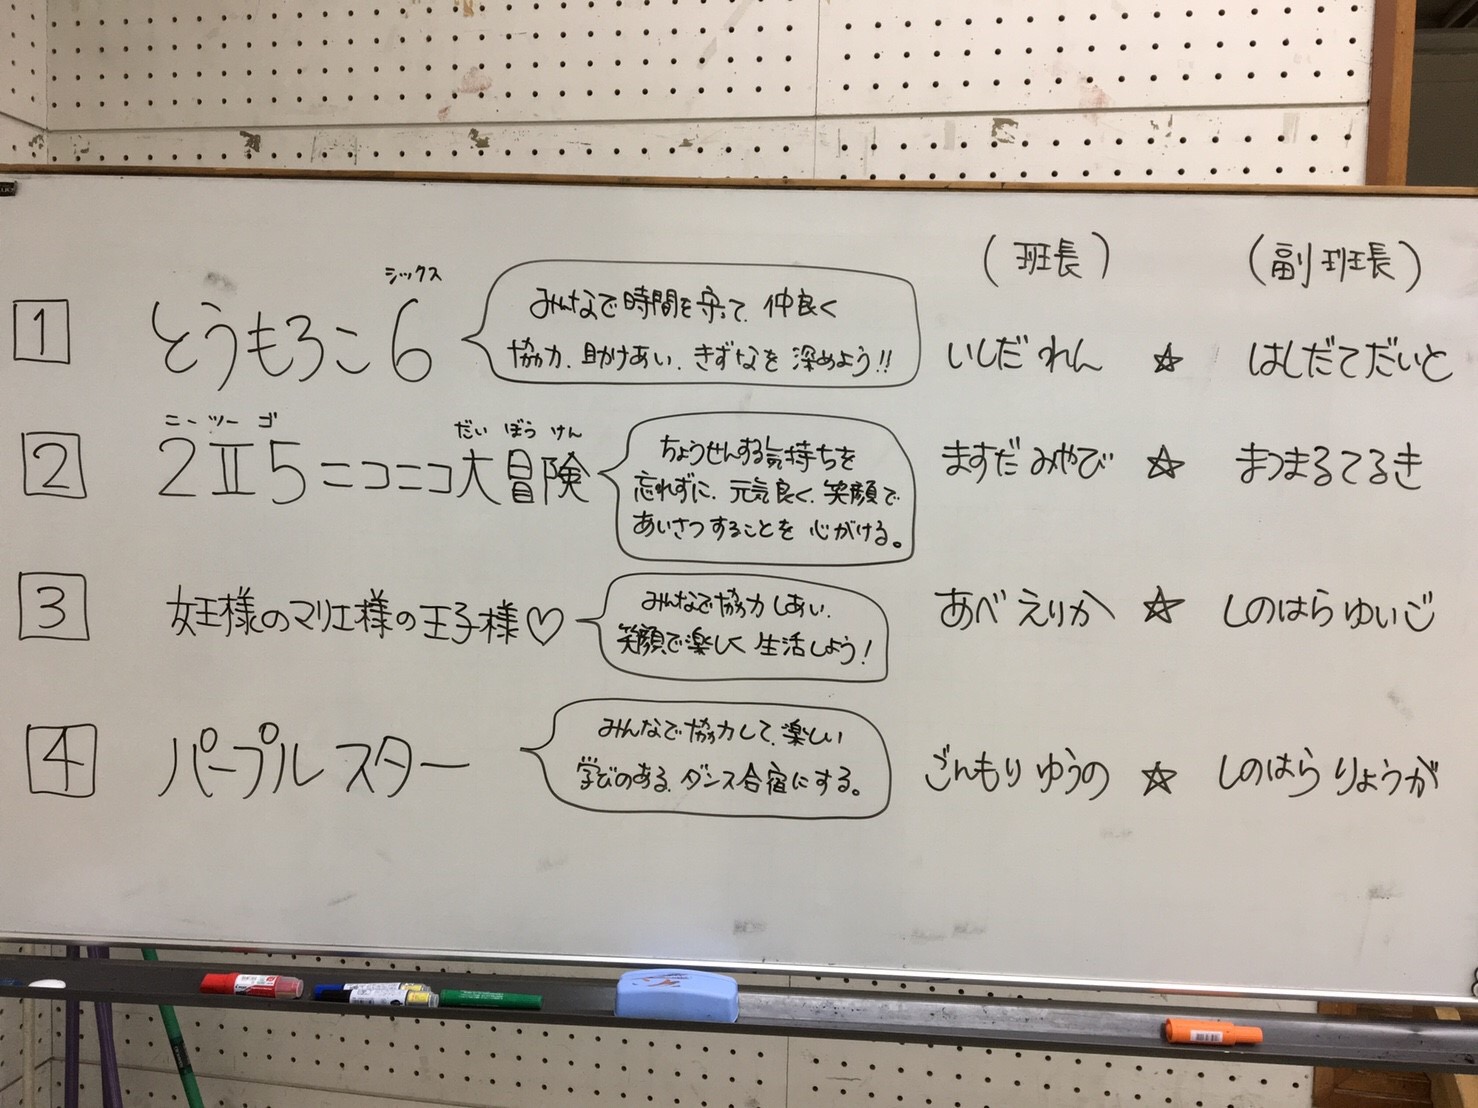 (班長) (副班長)
シックス
1 とうもろこ6
みんなで時間を守って、仲良く
協力、助けあい、きずなを深めよう!!
いしだ れん ☆ はしだて だいと
ニーツー ゴ だい ぼう けん
2 2Ⅱ5ニコニコ大冒険
ちょうせんする気持ちを
忘れずに、元気良く、笑顔で
あいさつすることを心がける。
ますだ みやび ☆ まつまる てるき
3 女王様のマリエ様の王子様♡
みんなで協力しあい、
笑顔で楽しく生活しよう!
あべ えりか ☆ しのはら ゆいご
4 パープルスター
みんなで協力して、楽しい
学びのある、ダンス合宿にする。
ごんもり ゆうの ☆ しのはら りょうが